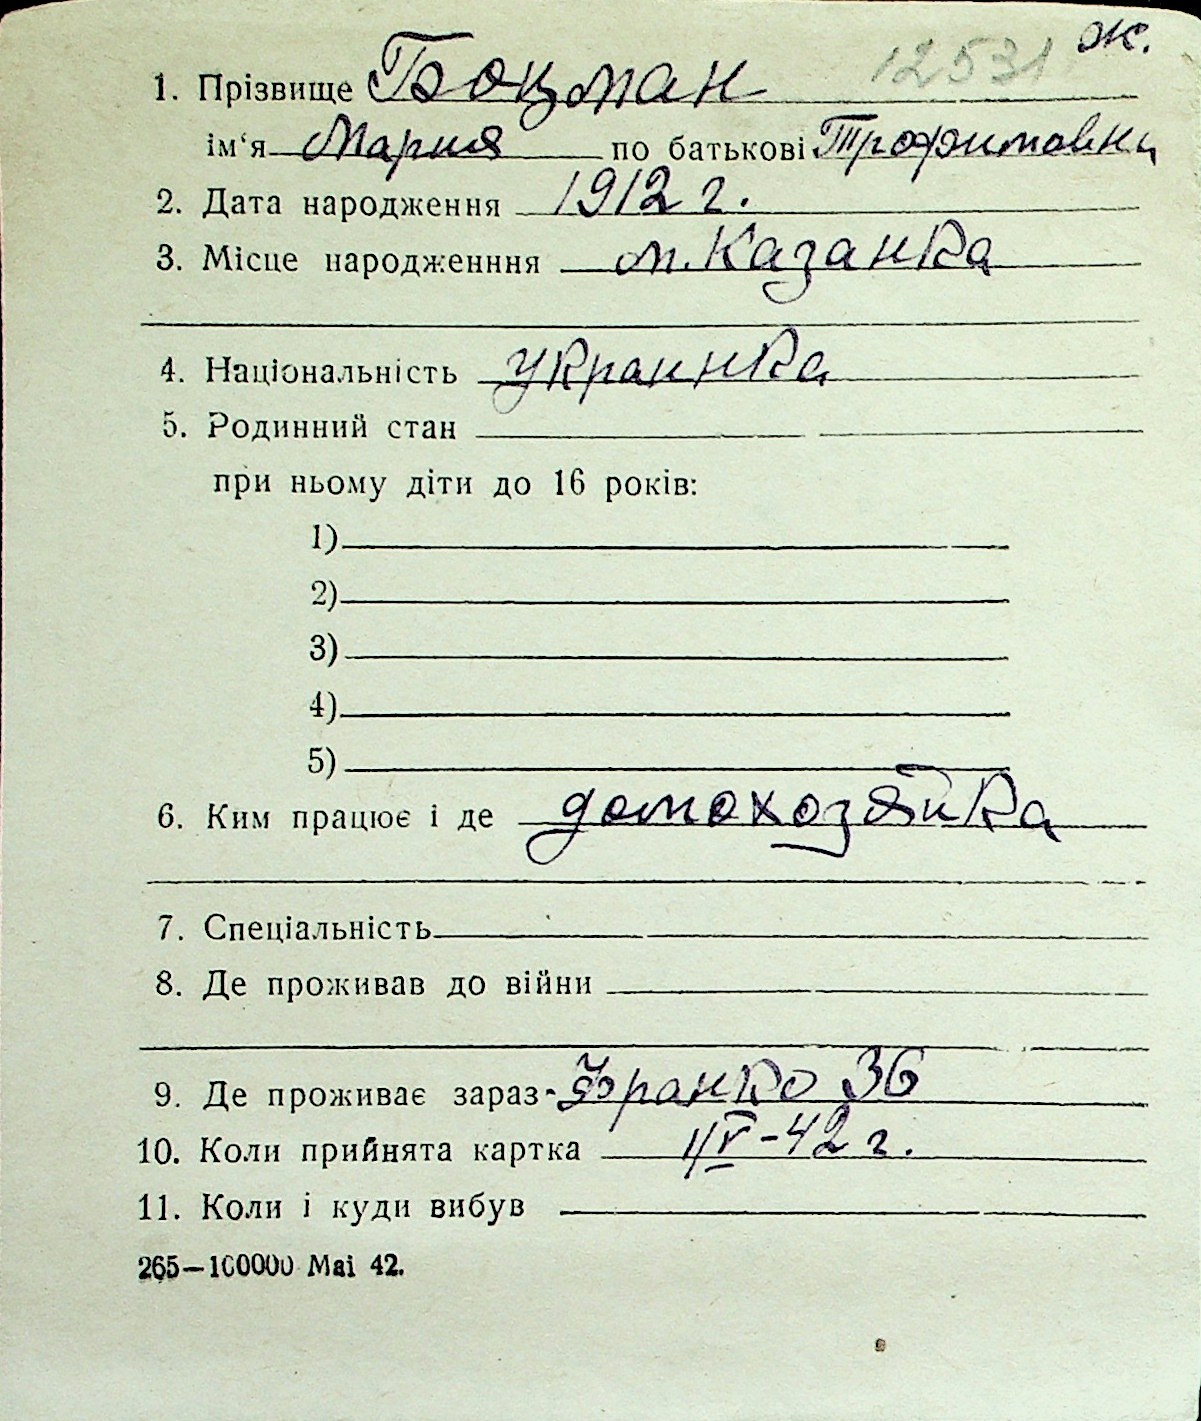 ж.
12531
1. Прізвище Боцман
ім'я Мария по батькові Трофимовна
2. Дата народження 1912 г.
3. Місце народженння м. Казанка
4. Національність украинка
5. Родинний стан
при ньому діти до 16 років:
1)
2)
3)
4)
5)
6. Ким працює і де домохозяйка
7. Спеціальність
8. Де проживав до війни
9. Де проживає зараз Франко 36
10. Коли прийнята картка 1/V-42 г.
11. Коли і куди вибув
265—100000 Mai 42.